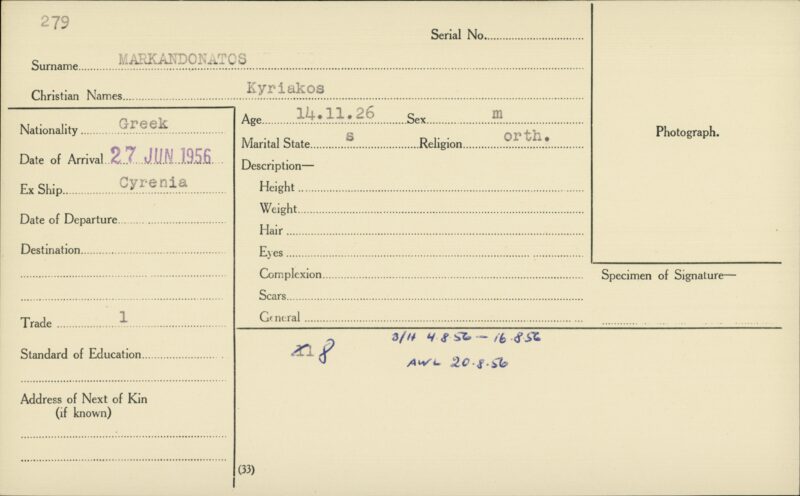 279
Serial No.
Surname MARKANDONATOS
Christian Names Kyriakos
Nationality Greek
Date of Arrival 27 JUN 1956
Ex Ship Cyrenia
Date of Departure
Destination
Trade 1
Standard of Education
Address of Next of Kin
(if known)
Age 14.11.26 Sex m
Marital State s Religion orth.
Description—
Height
Weight
Hair
Eyes
Complexion
Scars
General
8
D/H 4.8.56 — 16.8.56
AWL 20.8.56
(33)
Photograph.
Specimen of Signature—